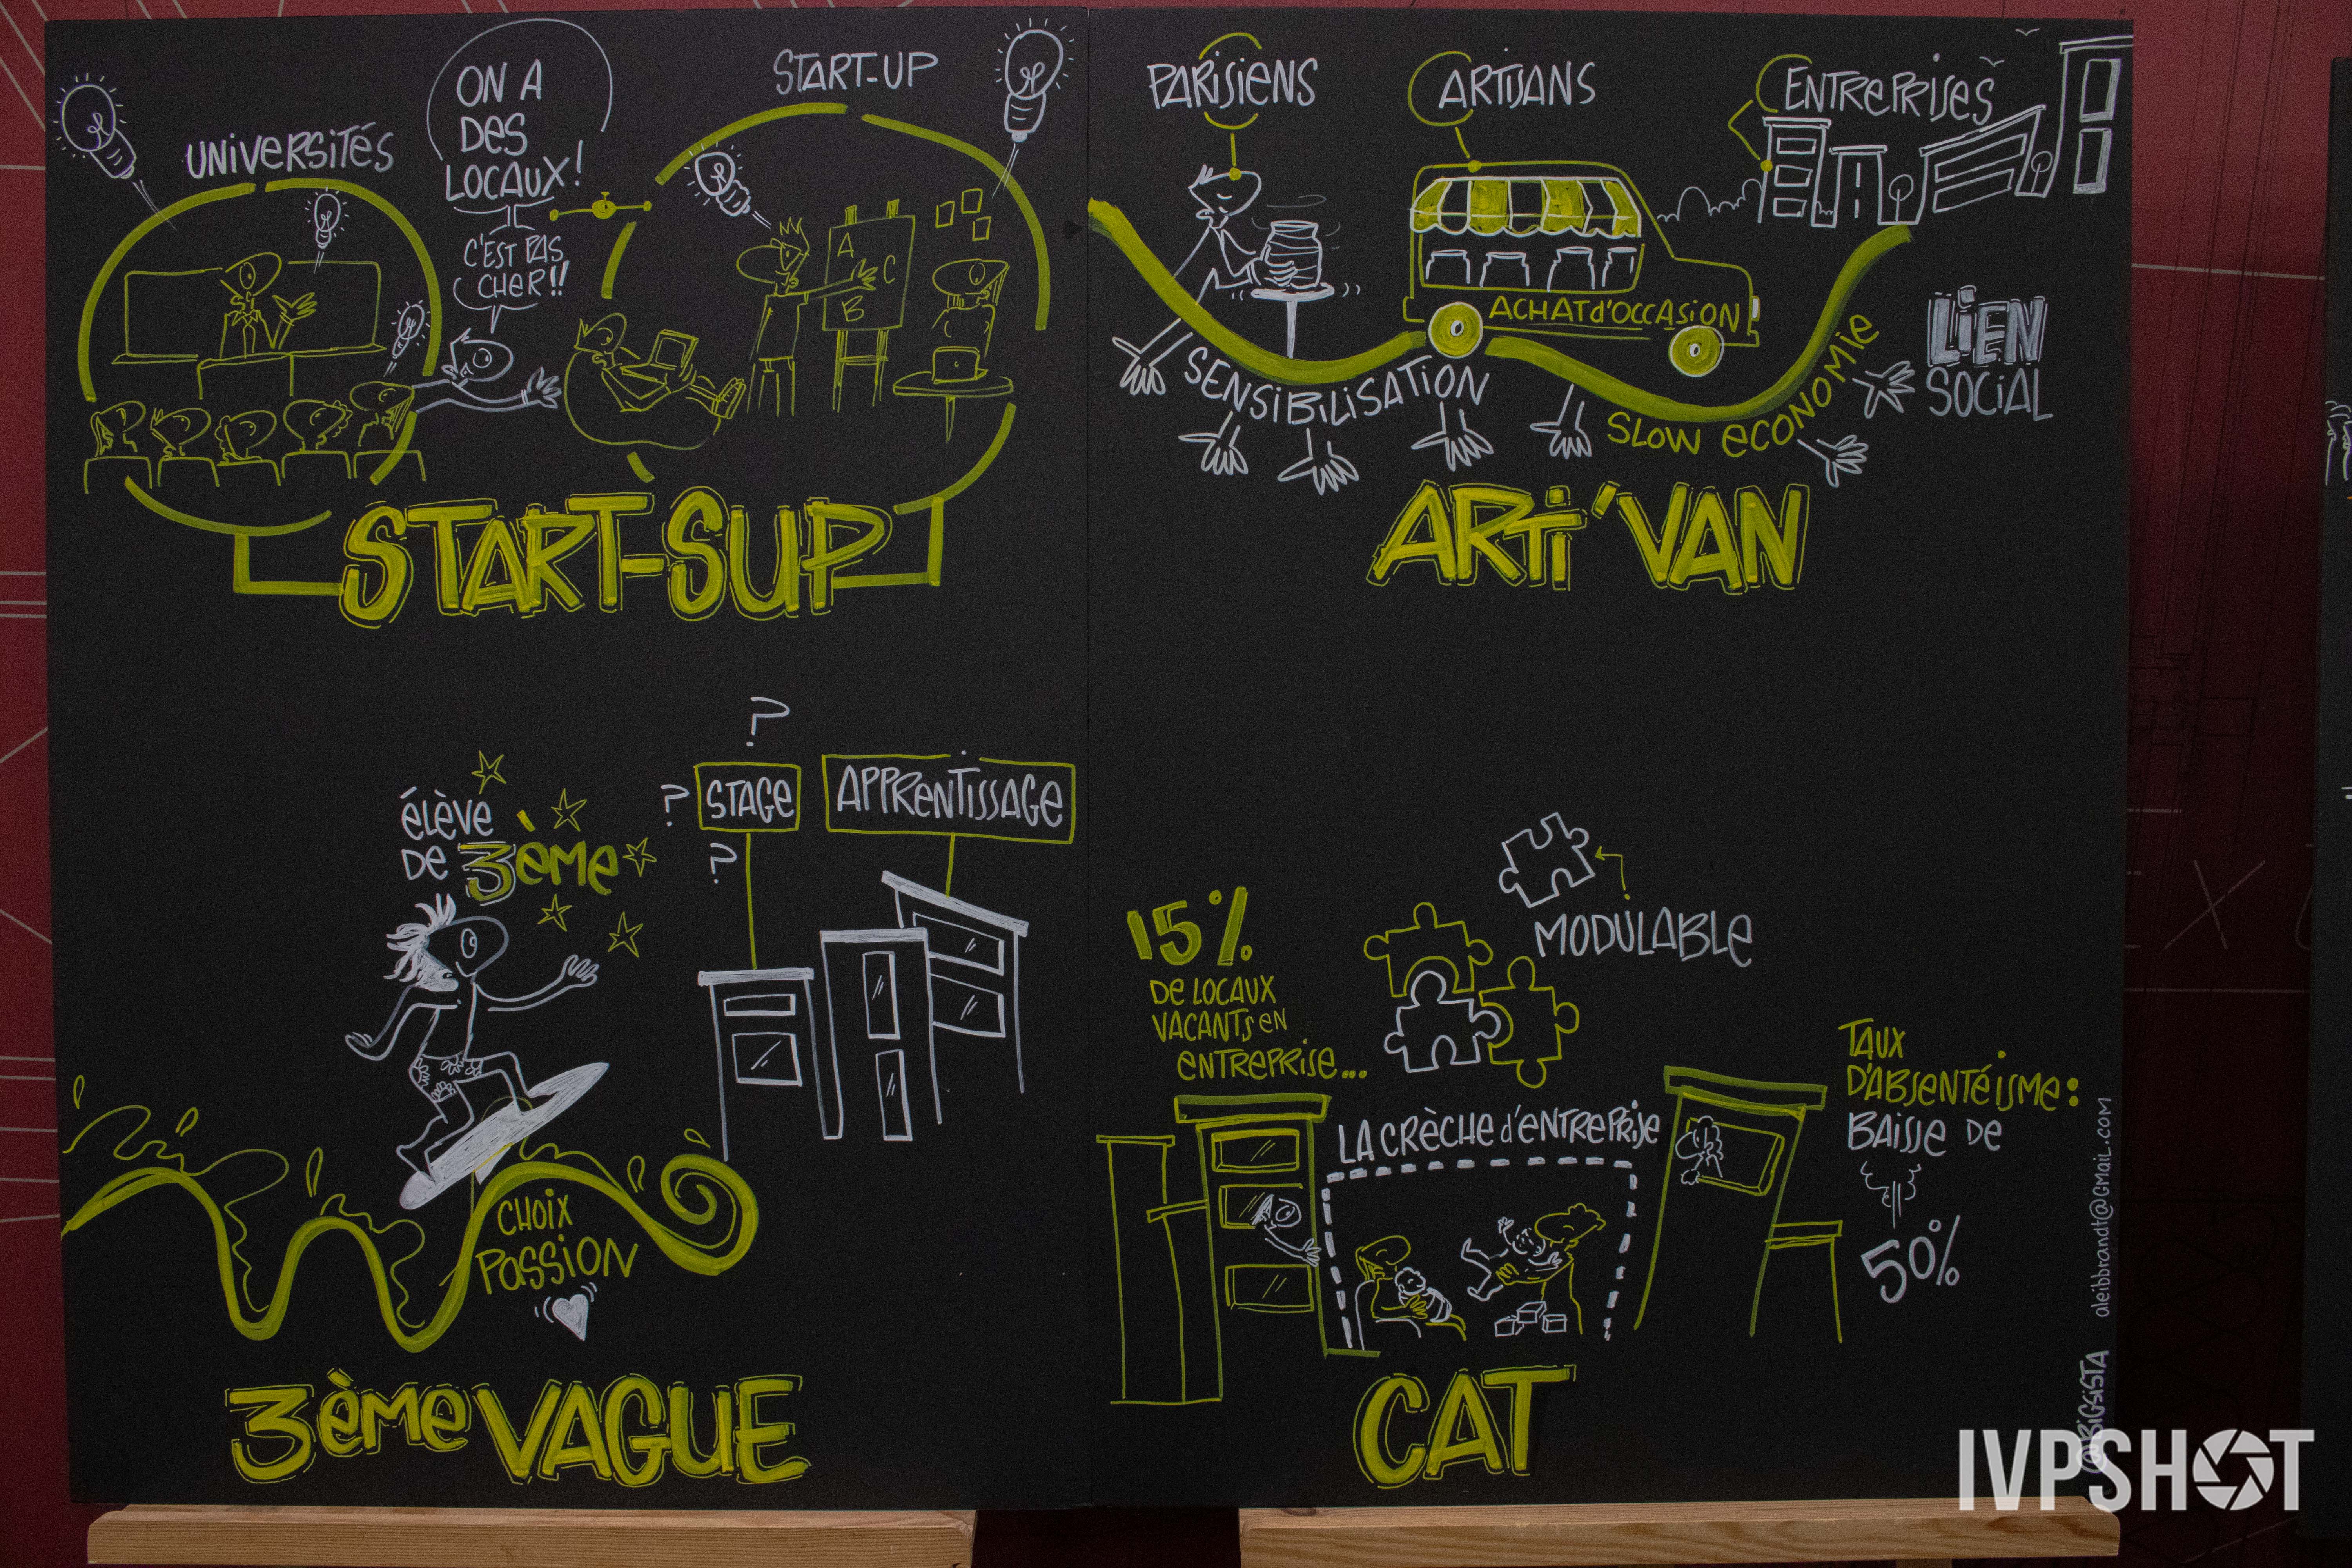 UNIVERSITÉS
ON A
DES
LOCAUX!
C'EST PAS
CHER!!
START-UP
A
C
B
START-SUP
PARISIENS
ARTISANS
ENTREPRISES
ACHAT d'OCCASION
SENSIBILISATION
SLOW ECONOMIE
LIEN
SOCIAL
ARTI'VAN
élève
DE 3ème
?
? STAGE
?
APPRENTISSAGE
CHOIX
PASSION
3ème VAGUE
15%
DE LOCAUX
VACANTS EN
ENTREPRISE...
MODULABLE
LA CRÈCHE d'ENTREPRISE
TAUX
D'ABSENTÉISME:
BAISSE DE
50%
CAT
@BIGSISTA aleibbrandt@GMAIL.COM
IVPSHOT